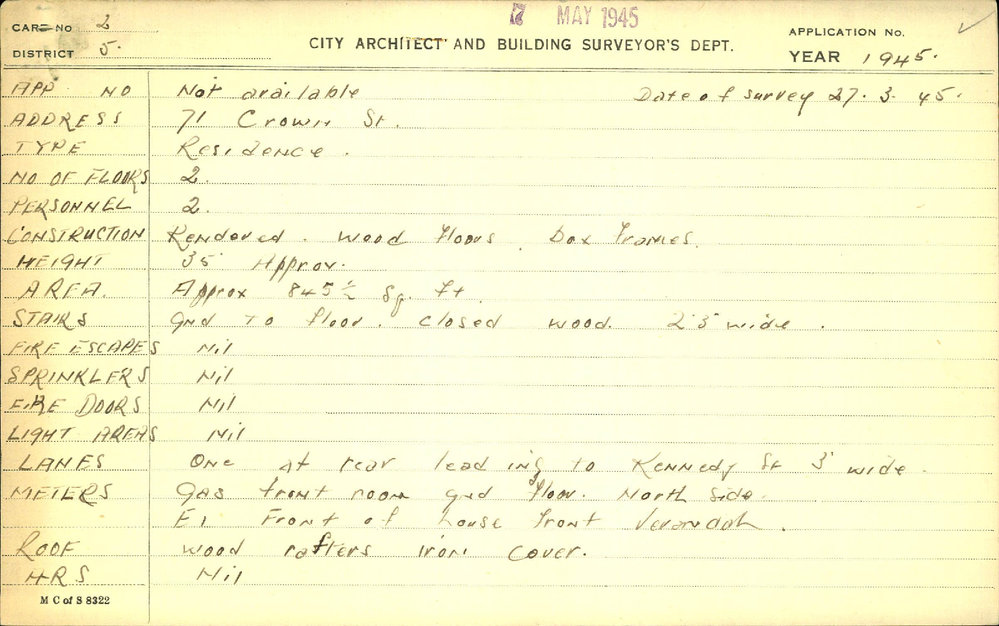 7 MAY 1945
CARD No 2
DISTRICT 5.
CITY ARCHITECT AND BUILDING SURVEYOR'S DEPT.
APPLICATION No.
YEAR 1945.
APP NO Not available Date of survey 27.3.45.
ADDRESS 71 Crown St.
TYPE Residence.
NO OF FLOORS 2.
PERSONNEL 2.
CONSTRUCTION Rendered. Wood floors. Box frames.
HEIGHT 35' Approx.
AREA. Approx 845½ Sq. ft.
STAIRS Gnd to floor. closed wood. 2'3" wide.
FIRE ESCAPES Nil
SPRINKLERS Nil
FIRE DOORS Nil
LIGHT AREAS Nil
LANES One at rear leading to Kennedy St 3' wide.
METERS Gas front room gnd floor. North side.
El Front of house front Verandah.
ROOF wood rafters iron cover.
HRS Nil
M C of S 8322